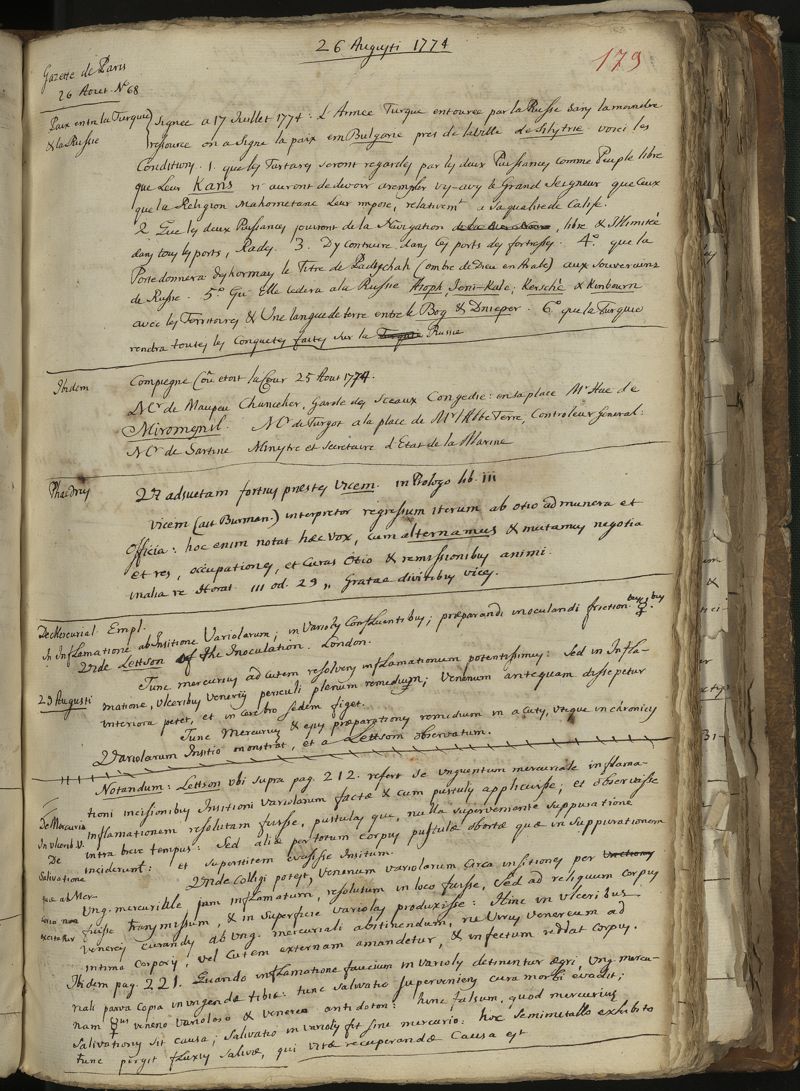 26 Augusti 1774
179
Gazette de Paris
26 Aout. No 68
Paix entre la Turquie
& la Russie
Signée a 17 Juillet 1774. L Armee Turque entourée par la Russe dans la moindre
resource on a signe la paix em Bulgarie pres de la Ville de Silytrie. voici les
Conditions. 1. que les Tartares seront regardes par les deux Puissances comme Peuple libre
que Leur Kans n'auront de devoir a remplir vis-avis le Grand Seigneur que Ceux
que la Religion Mahometane Leur impose, relativemt a sa qualite de Calife.
2 Que les deux Puissances jouiront de la Navigation de la Mer Noire, libre & Illimitée
dans tous les ports, Rades. 3. D'y contruire dans ces ports des fortresses. 4o. que la
Porte donnera dyhormais le Titre de Padischah (ombre de Dieu en Arabe) aux Souverains
de Russie. 5o. Qu'Elle cedera a la Russie Asoph, Jeni-Kale, Kersche & Kinbourn
avec les Territoires & Une langue de terre entre le Bog & Dnieper. 6o que la Turquie
rendra toutes les Conquetes faites sur la Turquie Russie
Ibidem
Compiegne (ou etoit la Cour 25 Aout 1774.
Mr. de Maupeu Chancelier, Garde des Sceaux Congedié: en sa place Mr Hue de
Miromenil. Mr. de Turgot a la place de Mr l'Abbe Terre, Controleur General:
Mr. de Sartine Ministre et Secretaire d'Etat de la Marine
Phaedrus
Ut adsuetam fortius praestes vicem. in Prologo lib. iii
Vicem (ait Burman.) interpretor regressum iterum ab otio ad munera et
Officia: hoc enim notat haec vox, cum alternamus & mutamus negotia
et res, occupationes, et Curas Otio & remissionibus animi.
in alia re Horat. III od. 29 „ Gratae divitibus vices.
De Mercurial. Empl.
in Inflamatione ab Insitione Variolarum; in Variolis Confluentibus; praeparandi inoculandi frictionibus ☿.bus
Vide Lettson of the Inoculation. London.
29 Augusti
Tunc mercurius ad cutem resolvens inflamationum potentissimus: Sed in Infla-
matione, ulceribus Venereis periculi plenum remedium; Venenum antequam dissipetur
interiora petet, et in cerebro sedem figet.
Tunc Mercurius & ejus praeparationes remedium in acutis, utque in chronicis
Variolarum Insitio monstrat, et a Lettsom observatum.
Notandum: Lettson ubi supra pag. 212. refert se unguentum mercuriale inflama-
tioni incisionibus Insitioni Variolarum factae & cum pustulis applicuisse; et observasse
inflamationem resolutam fuisse, pustulas que, nulla superveniente suppuratione
intra breve tempus: Sed aliae per totum corpus pustulae obortae quae in Suppurationem
inciderunt: et superstitem evasisse Insitum.
De Mercurio
In ulcerib V.
De
Salivatione
quae ab Mer-
curio non
excitatur
Unde colligi potest, Venenum variolarum circa insitiones per Unctiones
Ung. mercuriale jam inflamatum, resolutum in loco fuisse, Sed ad reliquum corpus
fuisse transmissum, & in superficie variolas produxisse: Hinc in ulceribus
Venereis curandis ab Ung. mercuriali abstinendum, ne Virus Venereum ad
intima corporis, vel cutem externam amandetur, & infectum reddat corpus.
Ibidem pag. 221. Quando inflamatione faucium in variolis detinentur aegri, Ung. mercu-
riali parva copia inungendae tibiae: tunc salivatio superveniens cura morbi evadit;
nam ☿us veneno varioloso & venereo antidoton: hinc falsum, quod mercurius
salivationis sit causa; Salivatio in variolis fit sine mercurio: hoc semimetallo exhibito
tunc pergit fluxus salivae, qui vitae recuperandae Causa est